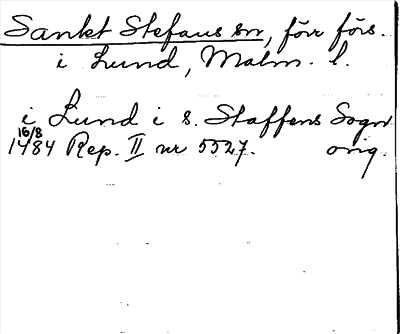 Sankt Stefans sn, förr förs.
i Lund, Malm. l.
i Lund i s. Staffens Sogn
16/8
1484 Rep. II nr 5527. orig.